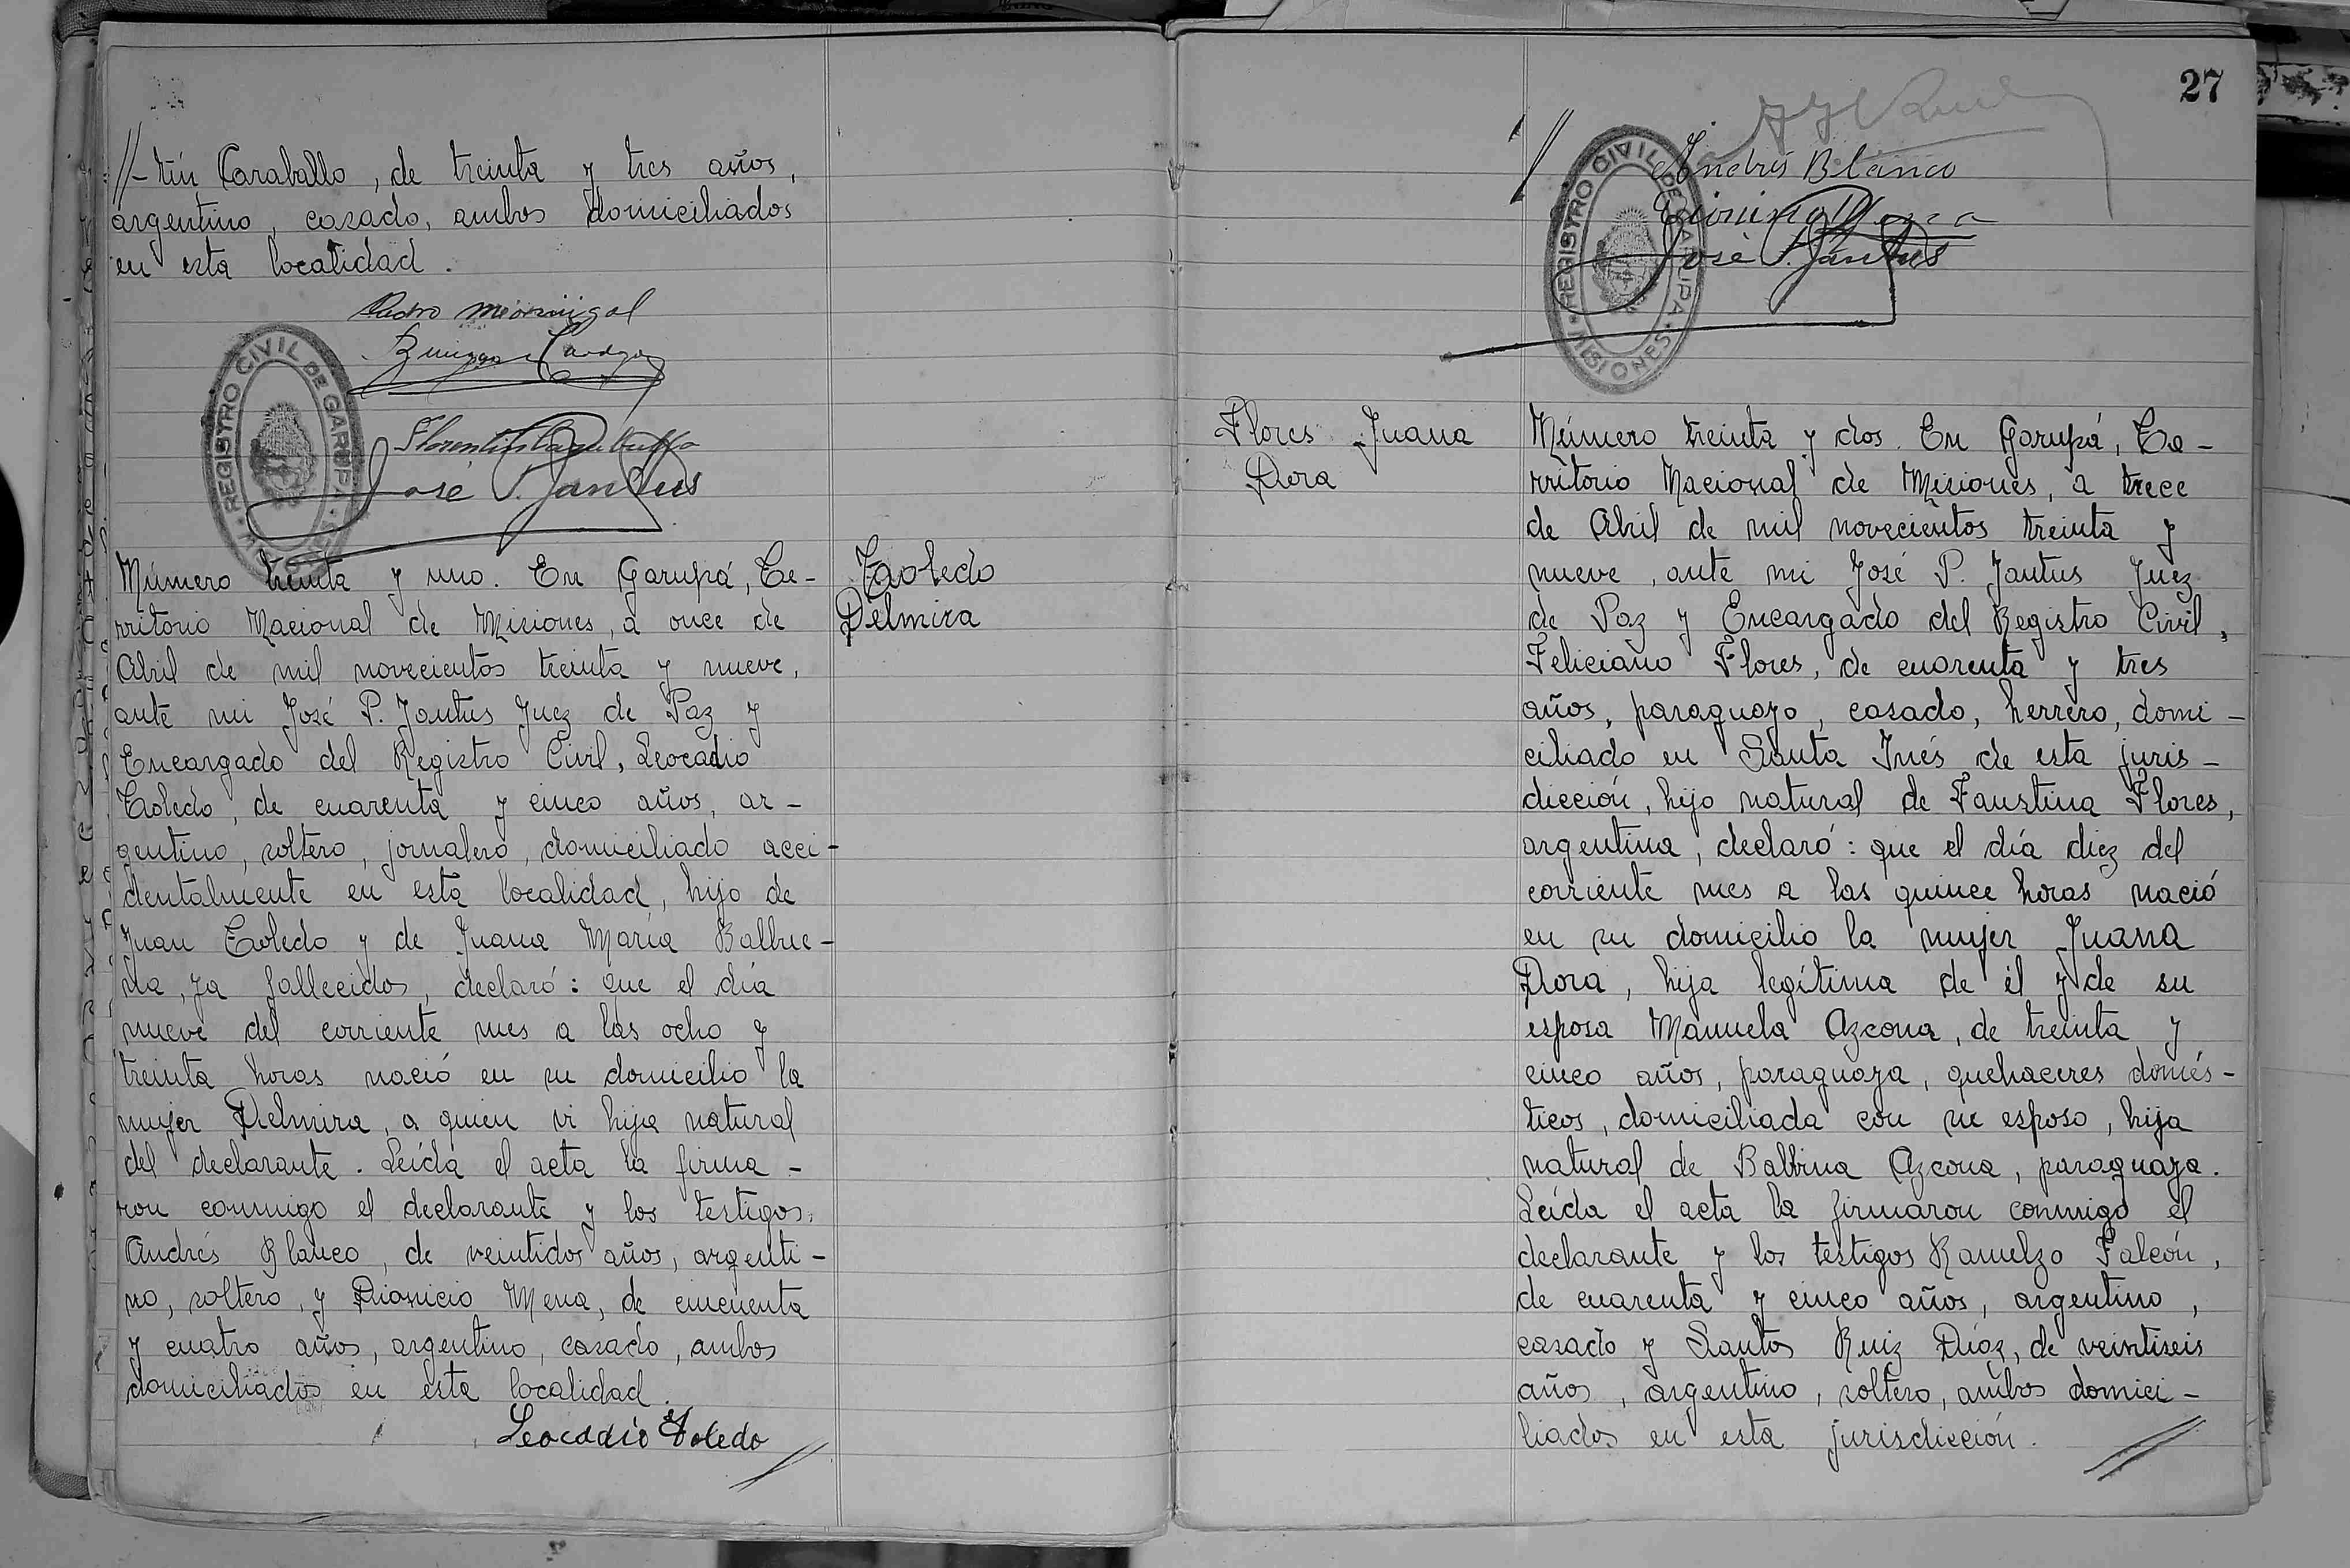 //- tín Caraballo, de treinta y tres años,
argentino, casado, ambos domiciliados
en esta localidad.
Pedro
REGISTRO CIVIL DE GARUPA
José P. Jantus
Número treinta y uno. En Garupá, Te-
rritorio Nacional de Misiones, a once de
Abril de mil novecientos treinta y nueve,
ante mi José P. Jantus Juez de Paz y
Encargado del Registro Civil, Leocadio
Toledo, de cuarenta y cinco años, ar-
gentino, soltero, jornalero, domiciliado acci-
dentalmente en esta localidad, hijo de
Juan Toledo y de Juana María Balbue-
na, ya fallecidos, declaró: que el día
nueve del corriente mes a las ocho y
treinta horas nació en su domicilio la
mujer Delmira, a quien vi hija natural
del declarante. Leída el acta la firma-
ron conmigo el declarante y los testigos:
Andrés Blanco, de veintidos años, argenti-
no, soltero, y Dionicio Mena, de cincuenta
y cuatro años, argentino, casado, ambos
domiciliados en esta localidad.
Leocadio Toledo
//
Toledo
Delmira
27
//
Andrés Blanco
José P. Jantus
REGISTRO CIVIL DE GARUPA MISIONES
Flores Juana
Dora
Número treinta y dos. En Garupá, Te-
rritorio Nacional de Misiones, a trece
de Abril de mil novecientos treinta y
nueve, ante mi José P. Jantus Juez
de Paz y Encargado del Registro Civil,
Feliciano Flores, de cuarenta y tres
años, paraguayo, casado, herrero, domi-
ciliado en Santa Inés de esta juris-
dicción, hijo natural de Faustina Flores,
argentina, declaró: que el día diez del
corriente mes a las quince horas nació
en su domicilio la mujer Juana
Dora, hija legítima de él y de su
esposa Manuela Azcona, de treinta y
cinco años, paraguaya, quehaceres domés-
ticos, domiciliada con su esposo, hija
natural de Balbina Azcona, paraguaya.
Leída el acta la firmaron conmigo el
declarante y los testigos Ramelzo Falcón,
de cuarenta y cinco años, argentino,
casado y Santos Ruiz Díaz, de veintiseis
años, argentino, soltero, ambos domici-
liados en esta jurisdicción.
//